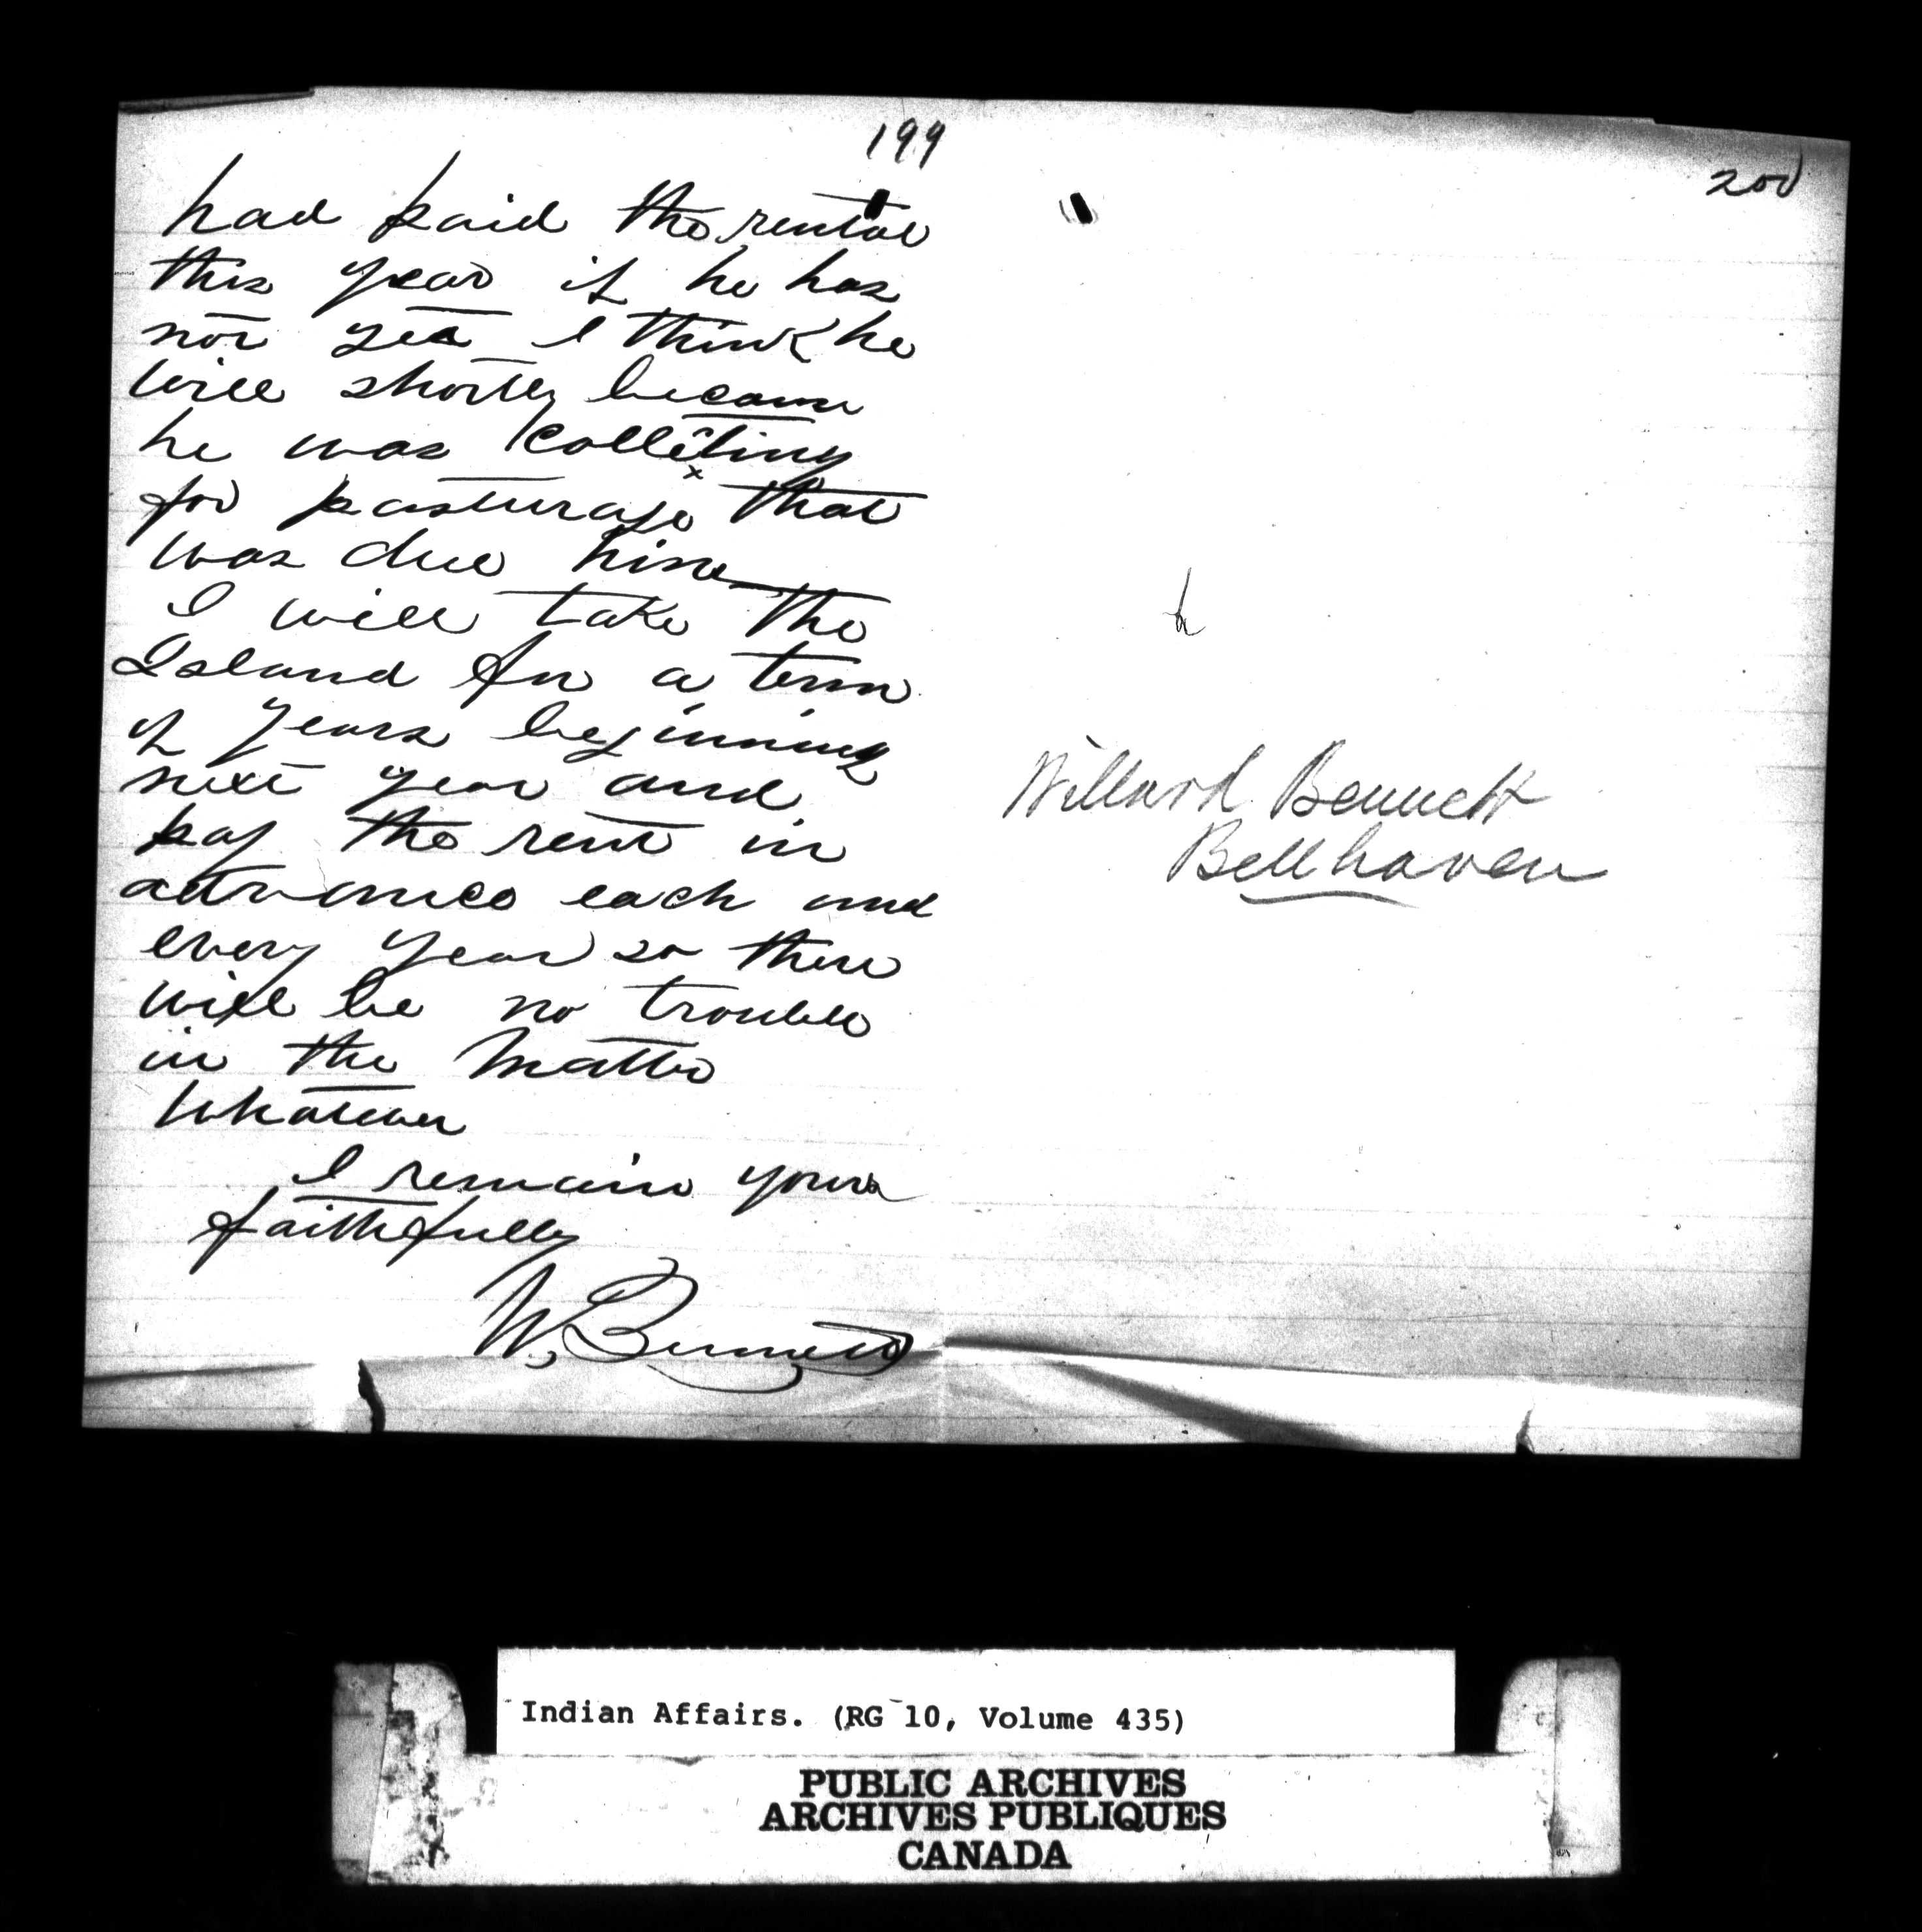 199
had paid the rental
this year if he has
not yet I think he
will shortly because
he was collecting
for pasturage that
was due him
I will take the
Island for a term
of years beginning
next year and
pay the rent in
advance each and
every year so there
will be no trouble
in the matter
whatever
I remain yours
faithfully
W. Bennett
200
Willard Bennett
Bellhaven
Indian Affairs. (RG 10, Volume 435)
PUBLIC ARCHIVES
ARCHIVES PUBLIQUES
CANADA